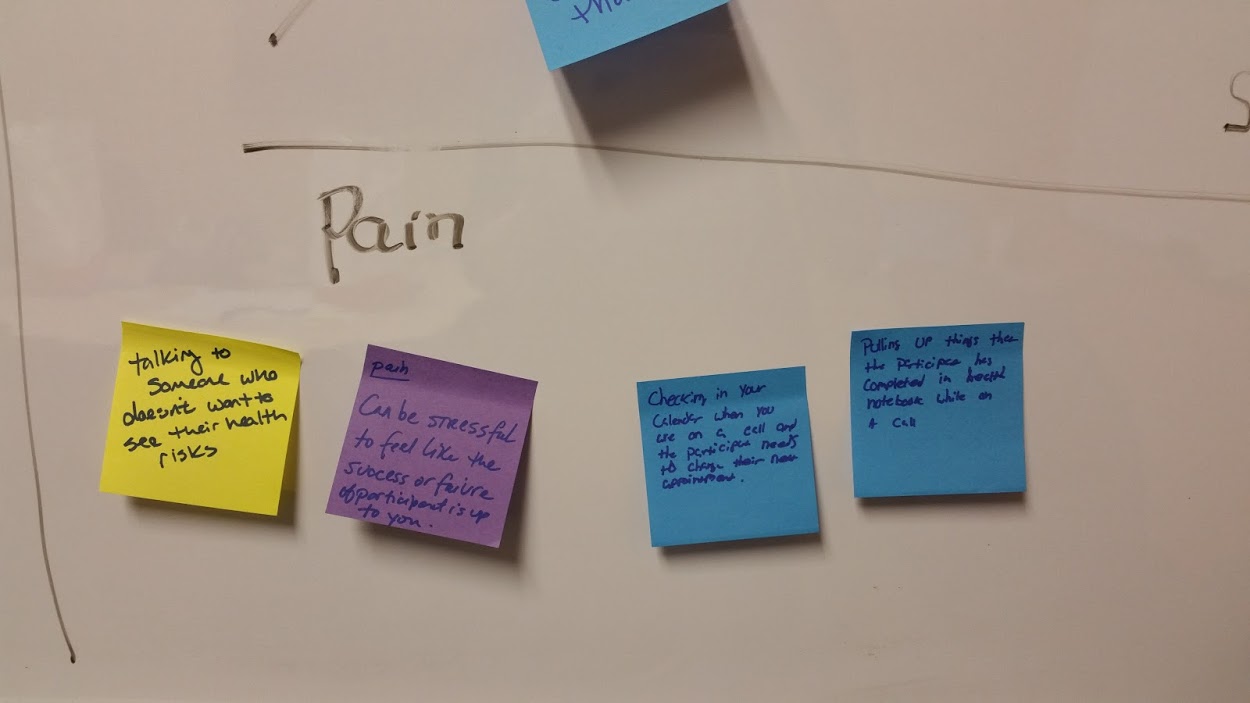 tho
S
Pain
talking to
someone who
doesn't want to
see their health
risks
pain
Can be stressful
to feel like the
success or failure
of participant is up
to you.
Checking in your
Calender when you
are on a call and
the participa needs
to change their new
appointment.
Pulling up things the
the participa has
completed in health
notebook while on
a call